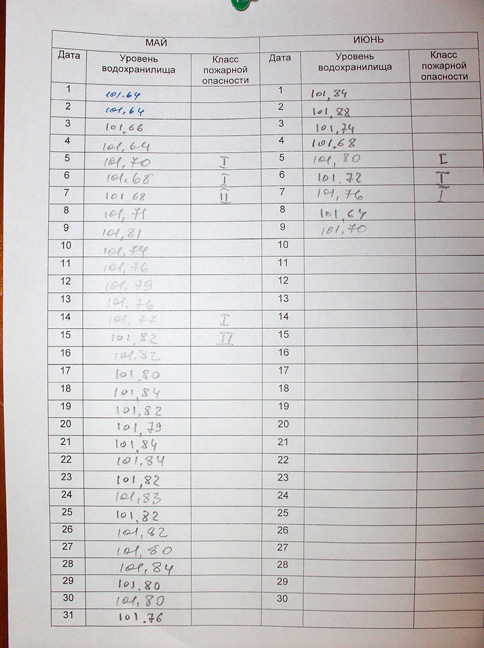 МАЙ ИЮНЬ
Дата Уровень водохранилища Класс пожарной опасности Дата Уровень водохранилища Класс пожарной опасности
1 101.64 1 101,84
2 101,64 2 101,88
3 101,66 3 101,74
4 101,64 4 101,68
5 101,70 I 5 101,80 I
6 101.68 I 6 101,72 I
7 101,68 II 7 101,76 I
8 101,71 8 101,64
9 101,81 9 101,70
10 101,74 10
11 101,76 11
12 101,79 12
13 101,76 13
14 101,77 I 14
15 101,82 II 15
16 101,82 16
17 101,80 17
18 101,84 18
19 101,82 19
20 101,79 20
21 101,84 21
22 101,84 22
23 101,82 23
24 101,83 24
25 101,82 25
26 101,82 26
27 101,80 27
28 101,84 28
29 101,80 29
30 101,80 30
31 101.76